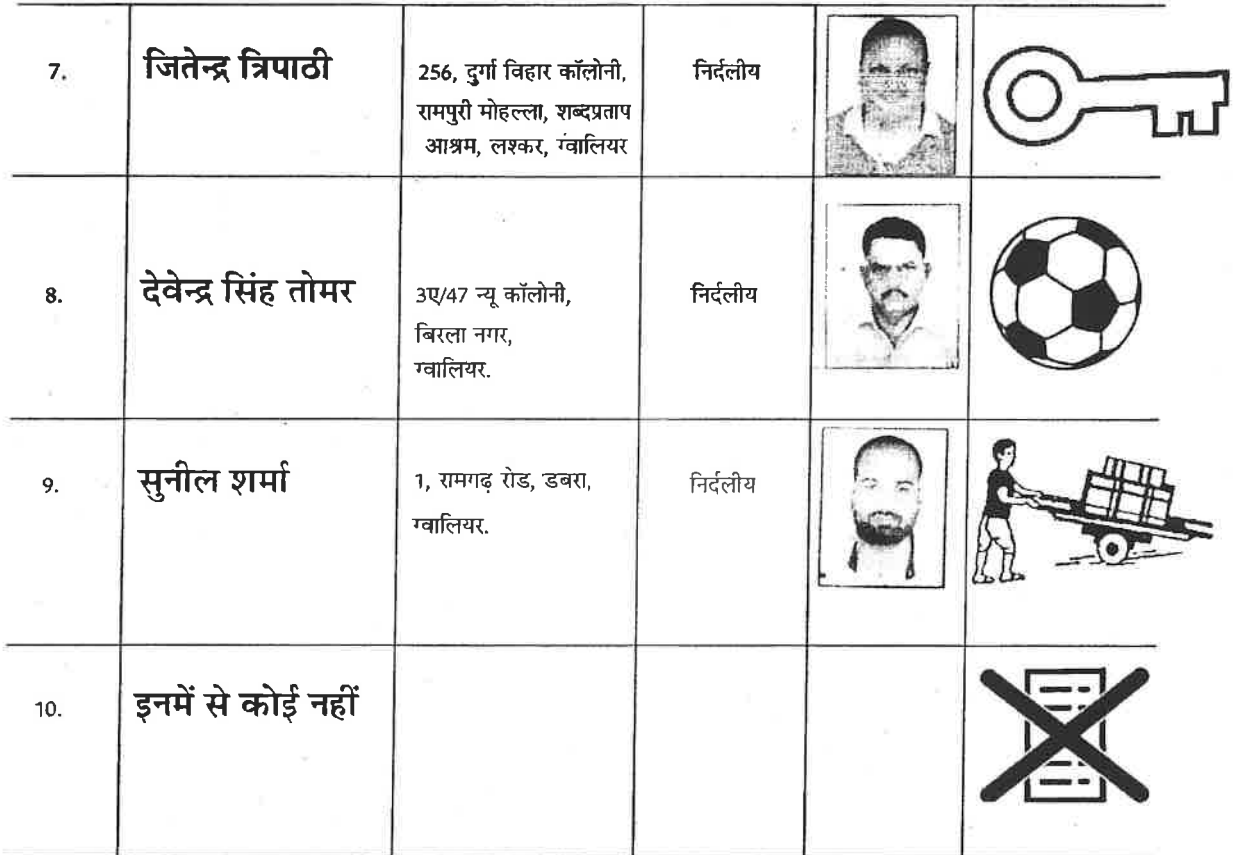 7.
जितेन्द्र त्रिपाठी
256, दुर्गा विहार कॉलोनी,
रामपुरी मोहल्ला, शब्दप्रताप
आश्रम, लश्कर, ग्वालियर
निर्दलीय
8.
देवेन्द्र सिंह तोमर
3ए/47 न्यू कॉलोनी,
बिरला नगर,
ग्वालियर.
निर्दलीय
9.
सुनील शर्मा
1, रामगढ़ रोड, डबरा,
ग्वालियर.
निर्दलीय
10.
इनमें से कोई नहीं